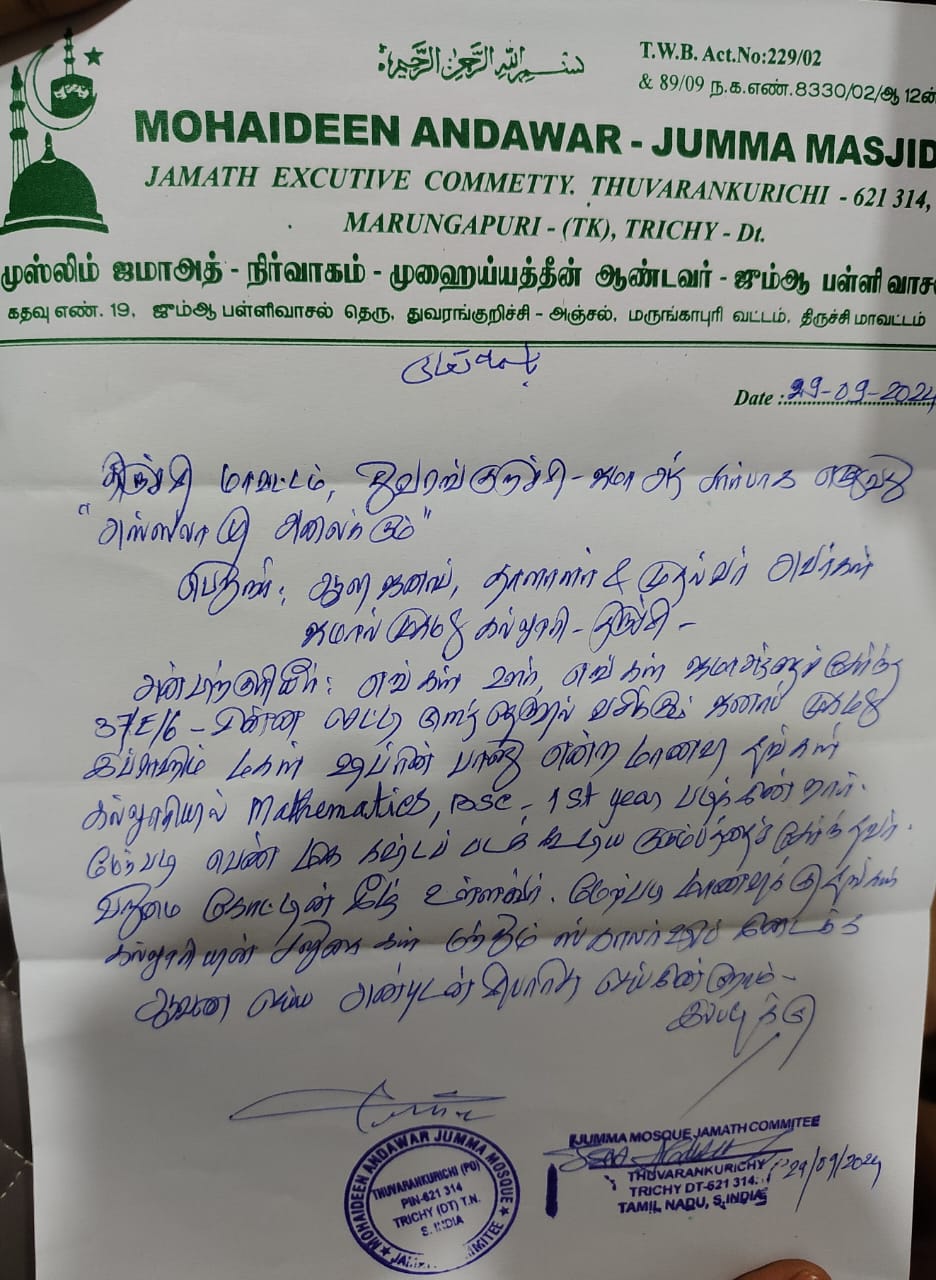 بسم الله الرحمن الرحيم
T.W.B. Act.No:229/02
& 89/09 ந.க.எண்.8330/02/ஆ 12ன்
MOHAIDEEN ANDAWAR - JUMMA MASJID
JAMATH EXCUTIVE COMMETTY. THUVARANKURICHI - 621 314,
MARUNGAPURI - (TK), TRICHY - Dt.
முஸ்லிம் ஜமாஅத் - நிர்வாகம் - முஹைய்யத்தீன் ஆண்டவர் - ஜும்ஆ பள்ளி வாசல்
கதவு எண். 19, ஜும்ஆ பள்ளிவாசல் தெரு, துவரங்குறிச்சி - அஞ்சல், மருங்காபுரி வட்டம், திருச்சி மாவட்டம்
Date : 29-09-2024
திருச்சி மாவட்டம், துவரங்குறிச்சி - ஜமாஅத் சார்பாக எழுவது
"அஸ்ஸலாமு அலைக்கும்"
பெறுநர்: தாளாளர் & முதல்வர் அவர்கள்
ஜமால் முகமது கல்லூரி - திருச்சி -
எங்கள் ஊர், எங்கள் ஜமாஅத்தைச் சேர்ந்த
37/E/6 - தெருவில் வசிக்கும் ஜனாப் முகமது
இப்ராஹிம் மகள் பானு என்ற மாணவி தங்கள்
கல்லூரியில் Mathematics, BSC - 1st year படிக்கின்றார்.
மேற்படி பெண் மிக கஷ்டப் படக் கூடிய குடும்பத்தைச் சேர்ந்தவர்.
வறுமை கோட்டின் கீழ் உள்ளவர். மேற்படி மாணவிக்கு தங்கள்
கல்லூரியின் சலுகைகள் மற்றும் ஸ்காலர்ஷிப் கிடைக்க
ஆவண செய்ய அன்புடன் சிபாரிசு செய்கின்றோம் -
இப்படிக்கு
MOHAIDEEN ANDAWAR JUMMA MOSQUE
THUVARANKURICHI (PO)
PIN-621 314
TRICHY (DT) T.N.
S. INDIA
JUMMA MOSQUE JAMATH COMMITEE
THUVARANKURICHY
TRICHY DT-621 314.
TAMIL NADU, S.INDIA
29/09/2024